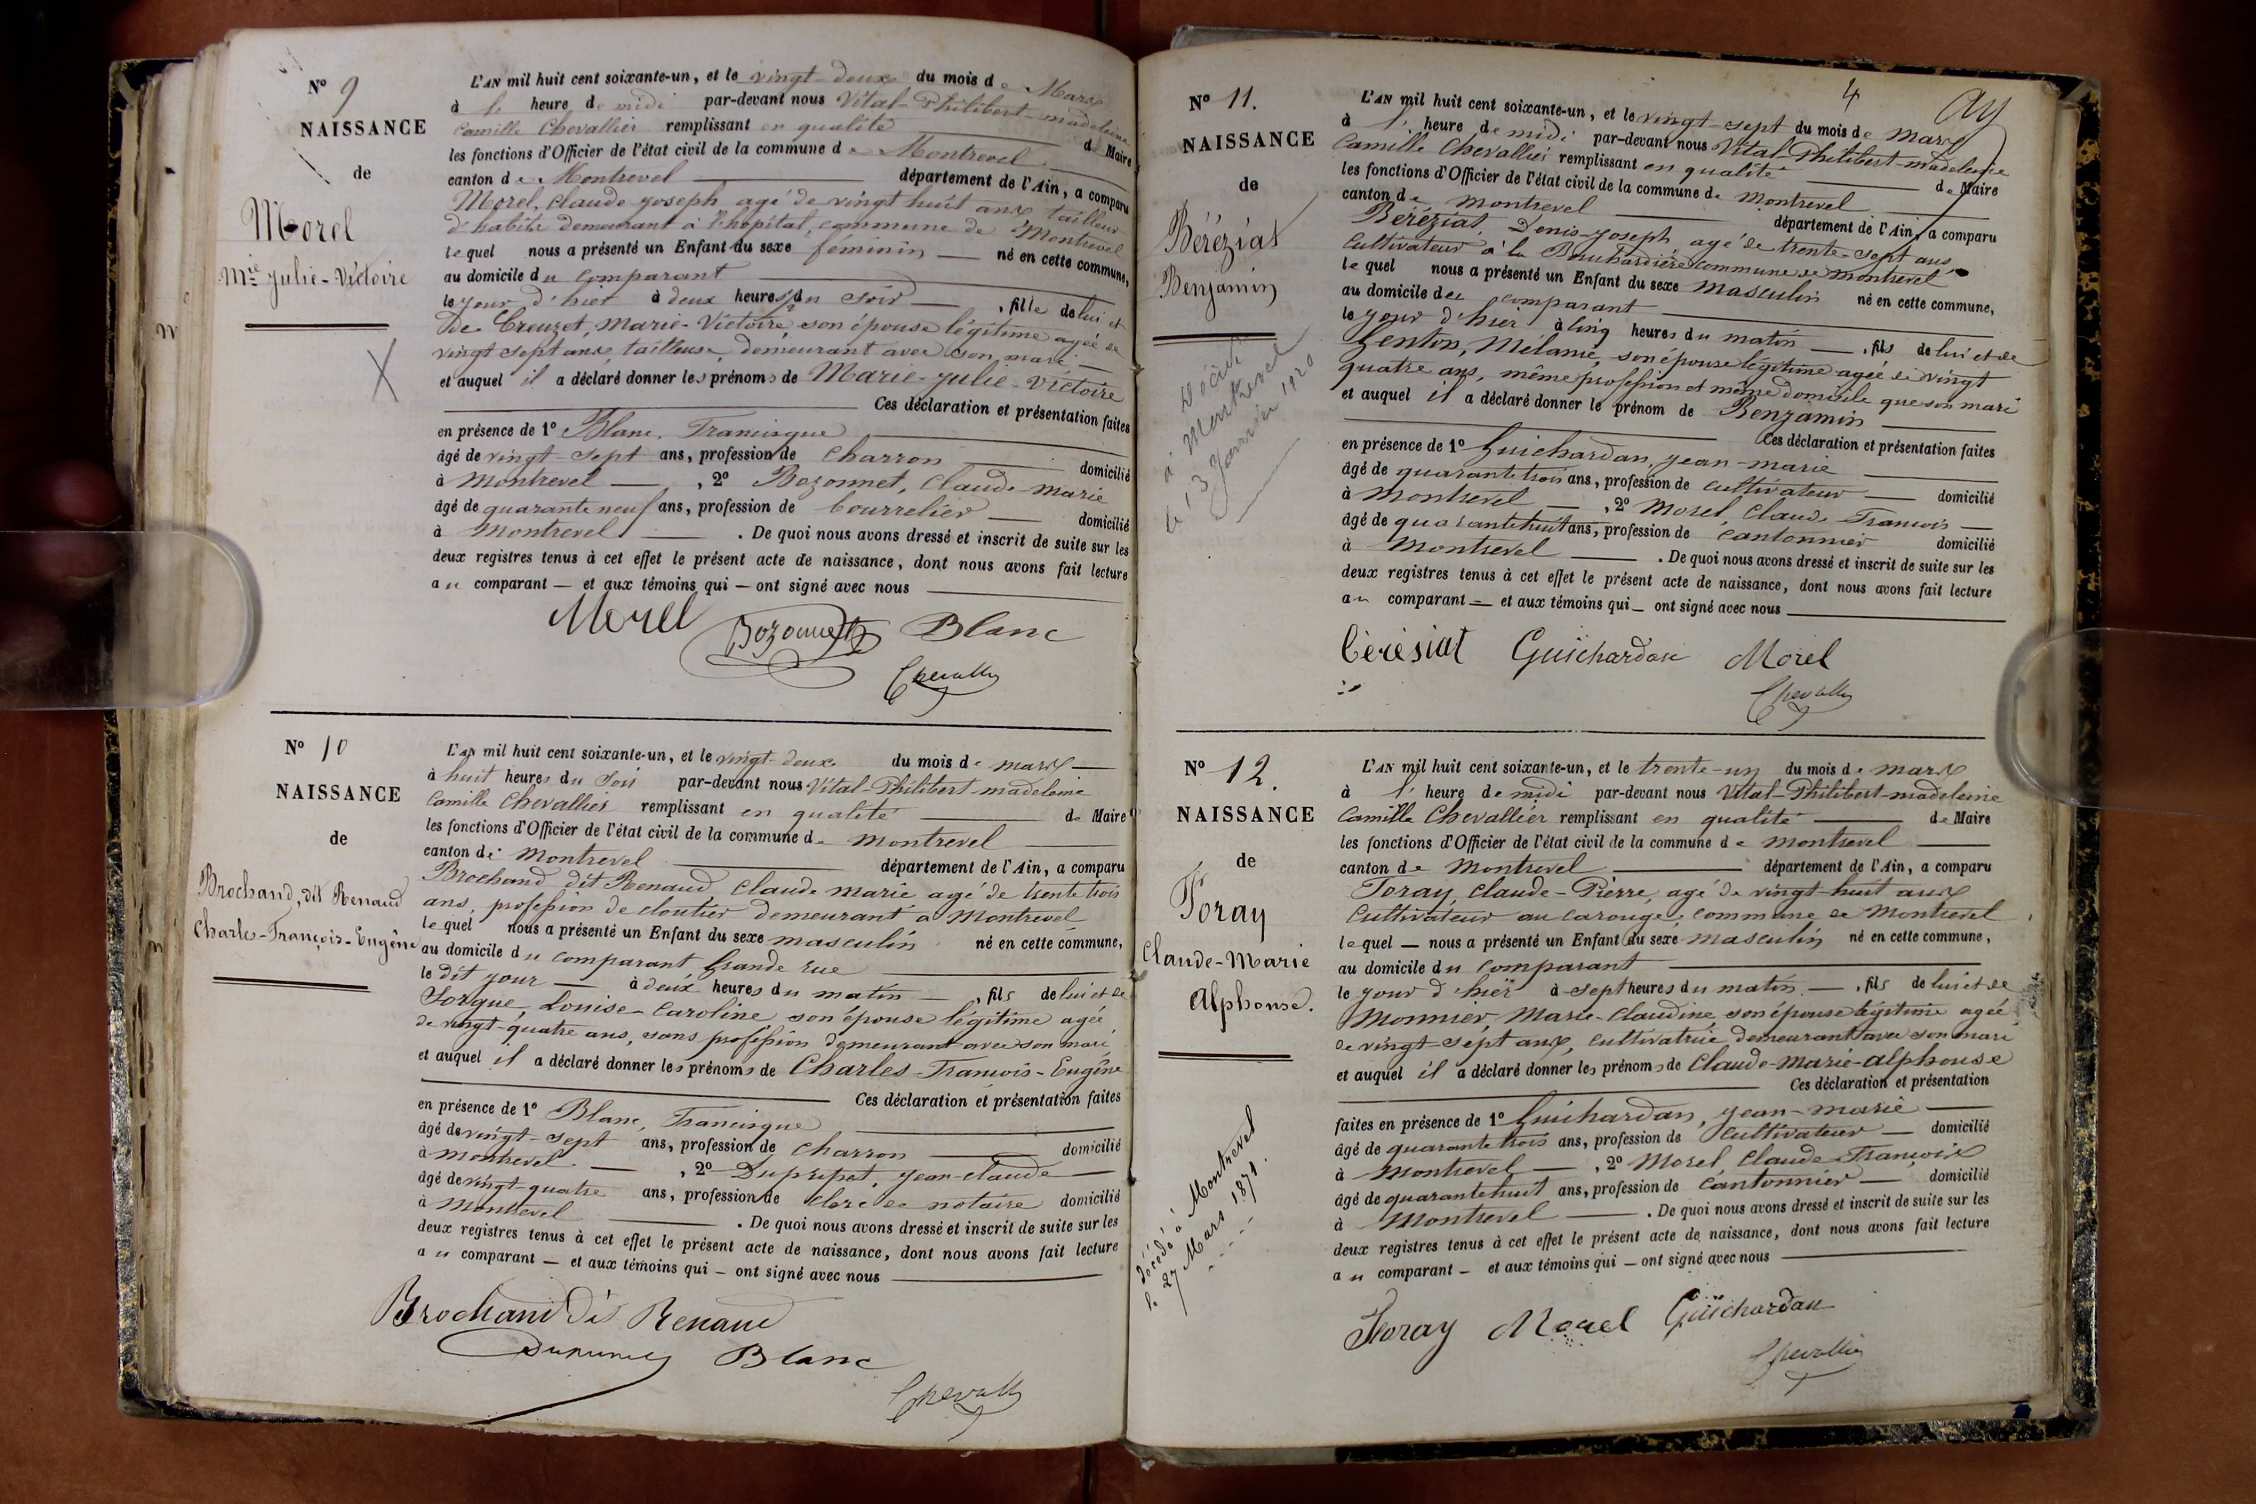 Nº 9
NAISSANCE
de
Morel
Mie Julie-Victoire
L'AN mil huit cent soixante-un, et le vingt-deux du mois de Mars
à l' heure de midi par-devant nous Vital-Philibert-madeleine
Camille Chevallier remplissant en qualité de Maire
les fonctions d'Officier de l'état civil de la commune de Montrevel
canton de Montrevel département de l'Ain, a comparu
Morel, Claude-Joseph agé de vingt huit ans tailleur
d'habits demeurant à l'hopital, commune de Montrevel
lequel nous a présenté un Enfant du sexe féminin né en cette commune,
au domicile du comparant
le jour d'hier à deux heures du soir, fille de lui et
de Creuzet, Marie-Victoire, son épouse légitime agée de
vingt sept ans, tailleuse, demeurant avec son mari
et auquel il a déclaré donner les prénoms de Marie-Julie-Victoire
Ces déclaration et présentation faites
en présence de 1º Blanc, Francisque
âgé de vingt-sept ans, profession de charron domicilié
à Montrevel, 2º Bozonnet, Claude-marie
âgé de quarante neuf ans, profession de bourrelier domicilié
à Montrevel. De quoi nous avons dressé et inscrit de suite sur les
deux registres tenus à cet effet le présent acte de naissance, dont nous avons fait lecture
au comparant — et aux témoins qui — ont signé avec nous
Morel Bozonnet Blanc
Chevallier
Nº 10
NAISSANCE
de
Brochand, dit Renaud
Charles-François-Eugène
L'AN mil huit cent soixante-un, et le vingt-deux du mois de mars
à huit heures du soir par-devant nous Vital-Philibert-madeleine
Camille Chevallier remplissant en qualité de Maire
les fonctions d'Officier de l'état civil de la commune de Montrevel
canton de Montrevel département de l'Ain, a comparu
Brochand dit Renaud Claude marie agé de trente trois
ans, profession de cloutier demeurant à Montrevel
lequel nous a présenté un Enfant du sexe masculin né en cette commune,
au domicile du comparant Grande rue
le dit jour à deux heures du matin, fils de lui et de
Forgue, Louise-Caroline son épouse légitime agée
de vingt-quatre ans, sans profession demeurant avec son mari
et auquel il a déclaré donner les prénoms de Charles-François-Eugène
Ces déclaration et présentation faites
en présence de 1º Blanc, Francisque
âgé de vingt-sept ans, profession de charron domicilié
à Montrevel, 2º Dupupet, Jean-Claude
âgé de vingt-quatre ans, profession de clerc de notaire domicilié
à Montrevel. De quoi nous avons dressé et inscrit de suite sur les
deux registres tenus à cet effet le présent acte de naissance, dont nous avons fait lecture
au comparant — et aux témoins qui — ont signé avec nous
Brochand Dit Renaud
Blanc
Chevallier
4
Nº 11.
NAISSANCE
de
Béréziat
Benjamin
Décédé
à Montrevel
le 13 Janvier 1920
L'AN mil huit cent soixante-un, et le vingt-sept du mois de mars
à l' heure de midi par-devant nous Vital-Philibert-madeleine
Camille Chevallier remplissant en qualité de Maire
les fonctions d'Officier de l'état civil de la commune de Montrevel
canton de Montrevel département de l'Ain, a comparu
Béréziat, Denis-Joseph, agé de trente-sept ans
Cultivateur à la Bouchardière commune de Montrevel
lequel nous a présenté un Enfant du sexe masculin né en cette commune,
au domicile du comparant
le jour d'hier à cinq heures du matin, fils de lui et de
Genton, Mélanie, son épouse légitime agée de vingt
quatre ans, même profession et même domicile que son mari
et auquel il a déclaré donner le prénom de Benjamin
Ces déclaration et présentation faites
en présence de 1º Guichardan, Jean-marie
âgé de quarante trois ans, profession de cultivateur domicilié
à Montrevel, 2º Morel, Claude François
âgé de quarante huit ans, profession de cantonnier domicilié
à Montrevel. De quoi nous avons dressé et inscrit de suite sur les
deux registres tenus à cet effet le présent acte de naissance, dont nous avons fait lecture
au comparant — et aux témoins qui — ont signé avec nous
Bérésiat Guichardan Morel
Chevallier
Nº 12.
NAISSANCE
de
Foray
Claude-Marie
Alphonse.
Décédé à Montrevel
le 27 Mars 1871.
L'AN mil huit cent soixante-un, et le trente-un du mois de mars
à l' heure de midi par-devant nous Vital-Philibert-madeleine
Camille Chevallier remplissant en qualité de Maire
les fonctions d'Officier de l'état civil de la commune de Montrevel
canton de Montrevel département de l'Ain, a comparu
Foray, Claude-Pierre, agé de vingt-huit ans
Cultivateur au carouge commune de Montrevel
lequel — nous a présenté un Enfant du sexe masculin né en cette commune,
au domicile du comparant
le jour d'hier à sept heures du matin, fils de lui et de
Monnier, Marie-Claudine, son épouse légitime agée
de vingt-sept ans, cultivatrice demeurant avec son mari
et auquel il a déclaré donner les prénoms de Claude-Marie-Alphonse
Ces déclaration et présentation
faites en présence de 1º Guichardan, Jean-marie
âgé de quarante trois ans, profession de cultivateur domicilié
à Montrevel, 2º Morel, Claude-François
âgé de quarante huit ans, profession de cantonnier domicilié
à Montrevel. De quoi nous avons dressé et inscrit de suite sur les
deux registres tenus à cet effet le présent acte de naissance, dont nous avons fait lecture
au comparant — et aux témoins qui — ont signé avec nous
Foray Morel Guichardan
Chevallier